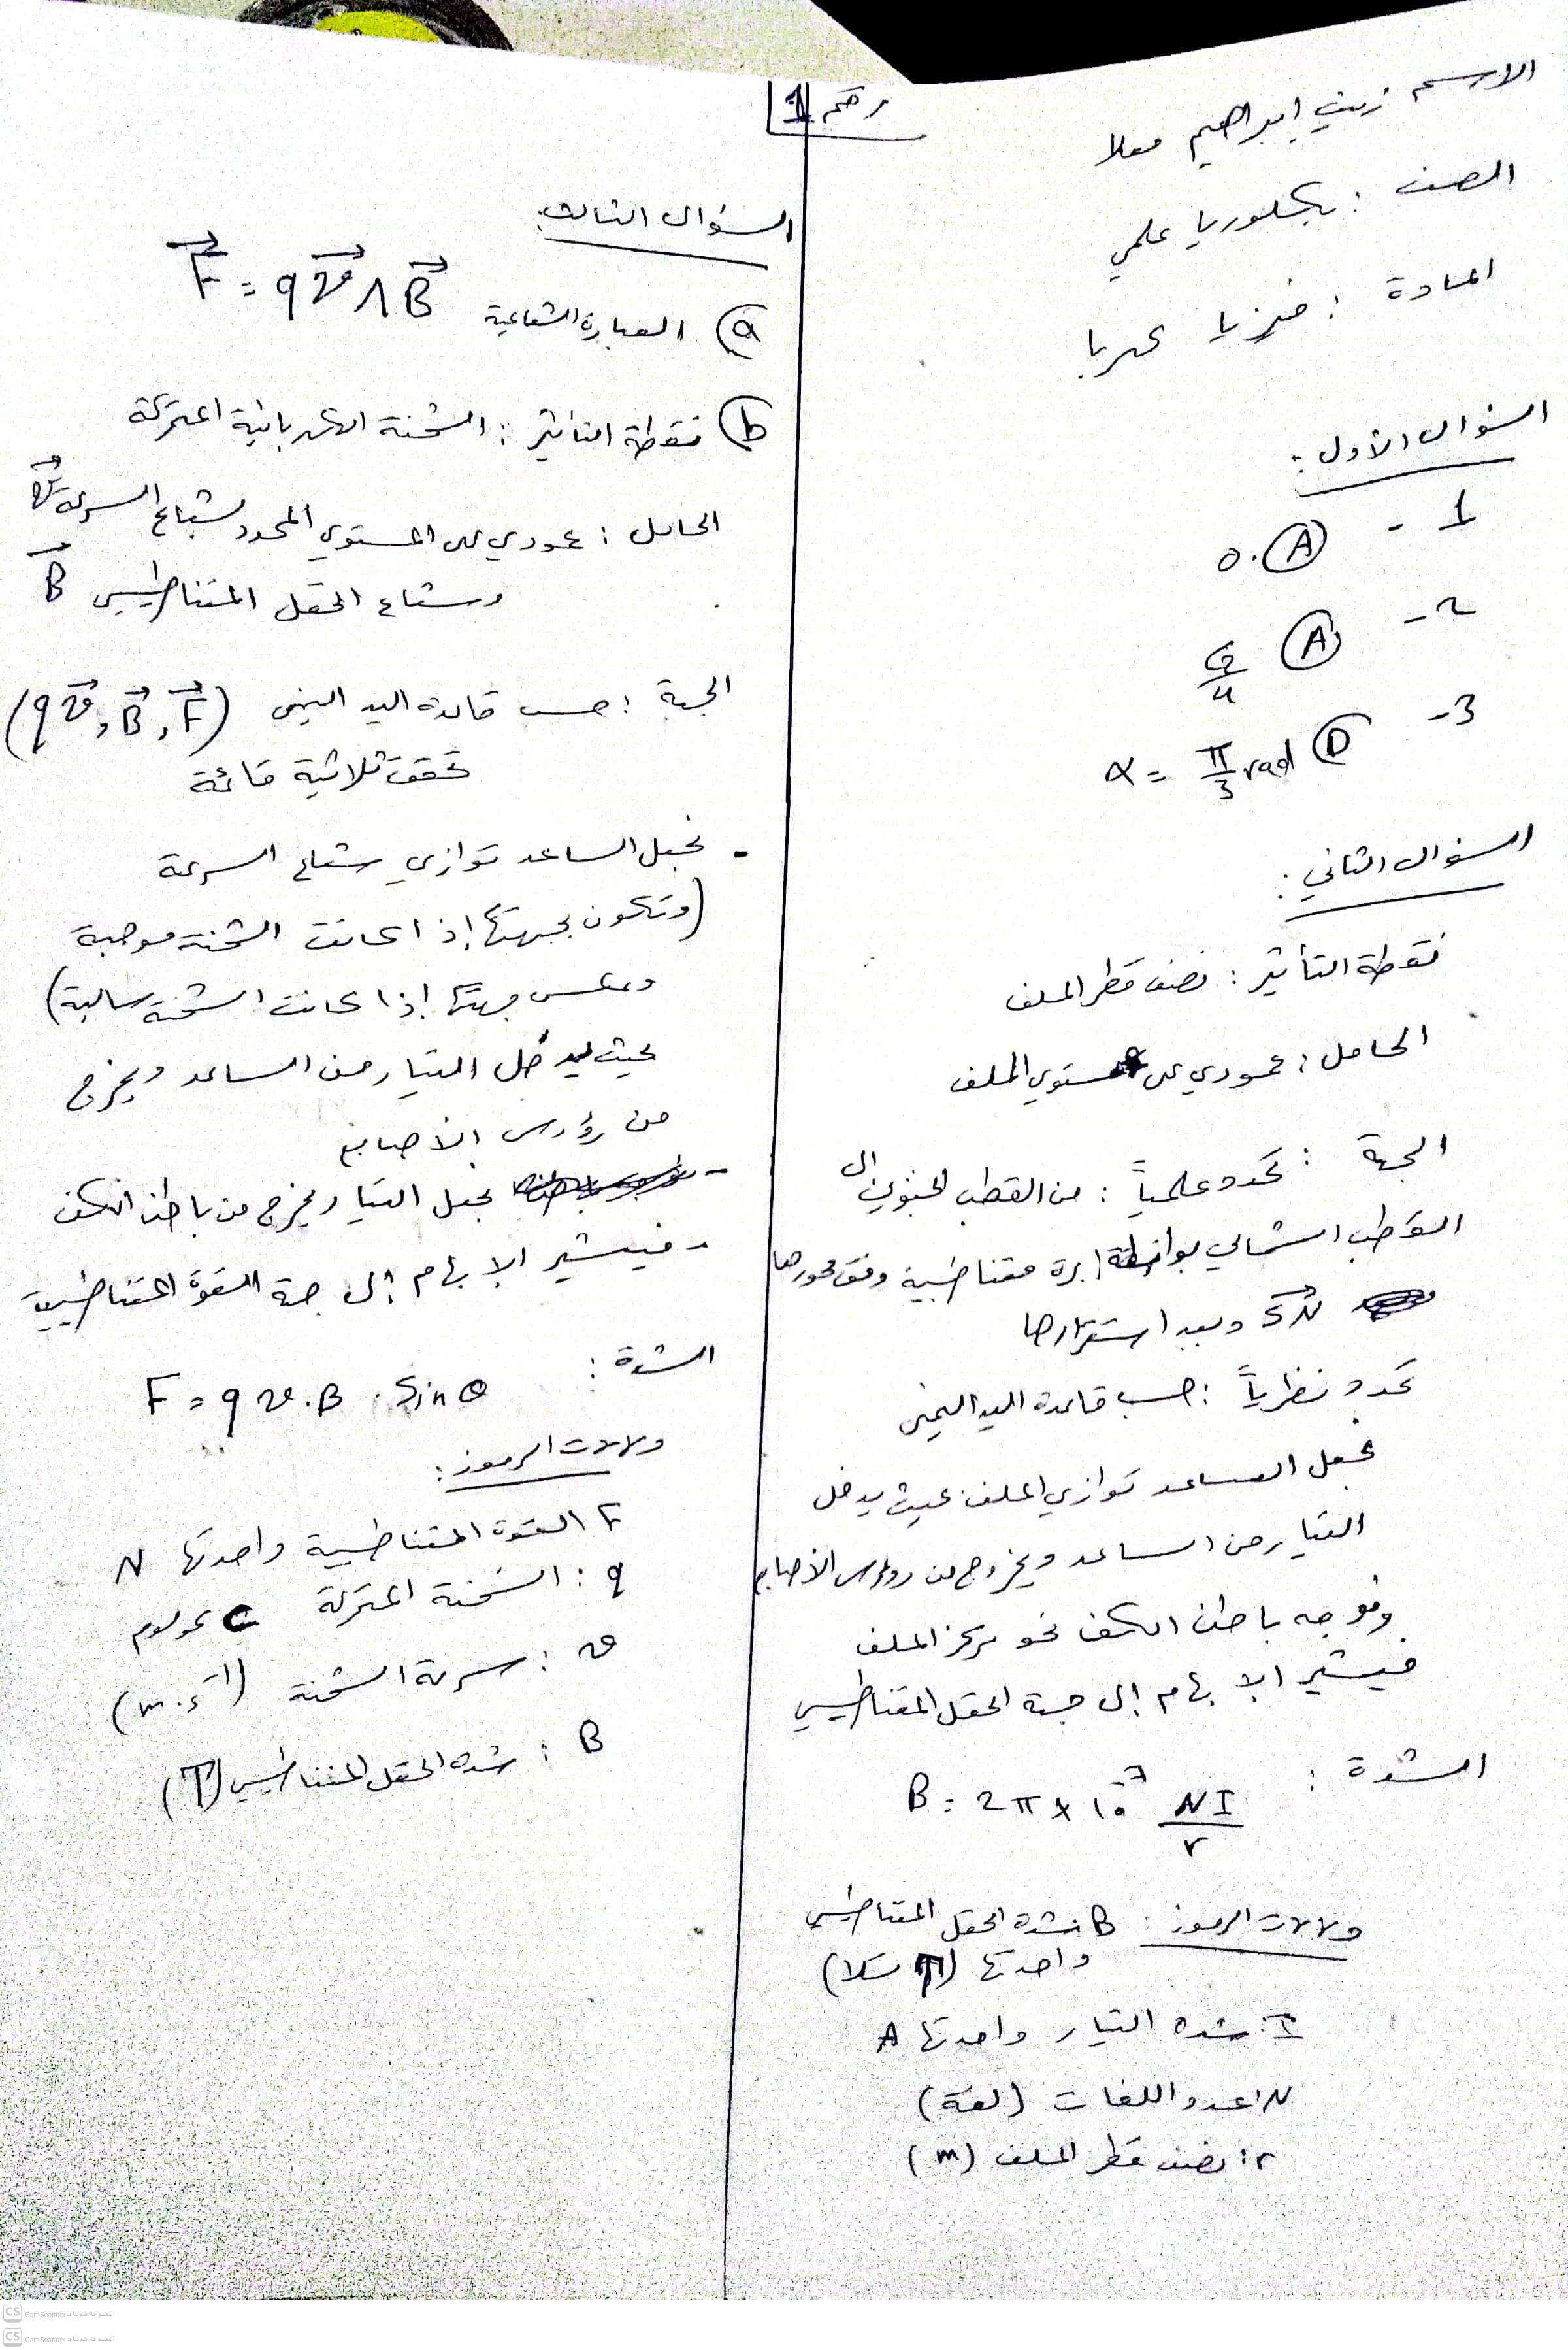 رقم 1
الاسم زينب إبراهيم معلا
الصف : بكلوريا علمي
المادة : فيزيا كهربا
السؤال الأول :
1 - (A) 0.
2 - (A)
3 - (D) α = π/3 rad
السؤال الثاني :
نقطة التأثير : نصف قطر الملف
الحامل : عمودي على مستوي الملف
الجهة : تحدد علمياً : من القطب الجنوبي الى
القطب الشمالي بواسطة ابرة مغناطيسية وفق محورها
SN وبعد استقرارها
تحدد نظرياً : حسب قاعدة اليد اليمنى
نجعل الساعد توازي الملف بحيث يدخل
التيار من الساعد ويخروج من رووس الأصابع
ونوجه باطن الكف نحو مركز الملف
فيشير الابهام إلى جهة الحقل المغناطيسي
الشدة : B = 2π × 10⁻⁷ NI/r
دلالات الرموز : B شدة الحقل المغناطيسي
واحدتها (T تسلا)
I : شدة التيار واحدتها A
N : عدد اللفات (لفة)
r : نصف قطر الملف (m)
السؤال الثالث :
(a) العبارة الشعاعية F = q v ∧ B
(b) نقطة التأثير : الشحنة الكهربائية المتحركة
الحامل : عمودي على المستوي المحدد بشعاع السرعة v
وشعاع الحقل المغناطيسي B
الجهة : حسب قاعدة اليد اليمنى (q v, B, F)
تحقق ثلاثية قائمة
- نجعل الساعد توازي شعاع السرعة
(وتكون بجهتها إذا كانت الشحنة موجبة
وبعكس جهتها إذا كانت الشحنة سالبة)
بحيث يدخل التيار من الساعد ويخرج
من رؤوس الأصابع
- نجعل التيار يخرج من باطن الكف
- فيشير الابهام إلى جهة القوة المغناطيسية
الشدة : F = q v . B . Sin θ
دلالات الرموز :
F القوة المغناطيسية واحدتها N
q : الشحنة المتحركة C كولوم
v : سرعة الشحنة (m.s⁻¹)
B : شدة الحقل المغناطيسي (T)
CS CamScanner الممسوحة ضوئيا بـ
CS CamScanner الممسوحة ضوئيا بـ